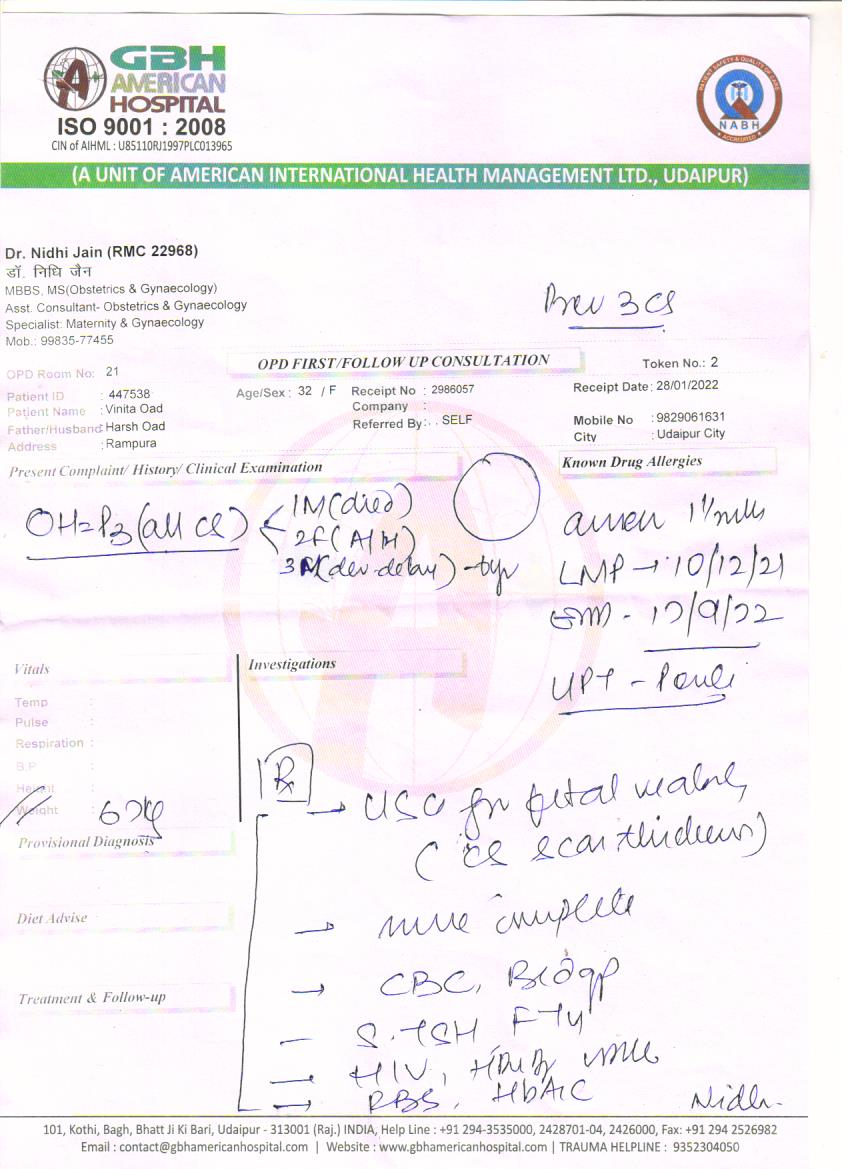 GBH
AMERICAN
HOSPITAL
ISO 9001 : 2008
CIN of AIHML : U85110RJ1997PLC013965
PATIENT SAFETY & QUALITY OF CARE
NABH
ACCREDITED
(A UNIT OF AMERICAN INTERNATIONAL HEALTH MANAGEMENT LTD., UDAIPUR)
Dr. Nidhi Jain (RMC 22968)
डॉ. निधि जैन
MBBS, MS(Obstetrics & Gynaecology)
Asst. Consultant- Obstetrics & Gynaecology
Specialist: Maternity & Gynaecology
Mob.: 99835-77455
Prev 3 CS
OPD Room No: 21
OPD FIRST/FOLLOW UP CONSULTATION
Token No.: 2
Patient ID : 447538
Age/Sex : 32 / F Receipt No : 2986057
Receipt Date : 28/01/2022
Patient Name : Vinita Oad
Company :
Father/Husband : Harsh Oad
Referred By : . . SELF
Mobile No : 9829061631
Address : Rampura
City : Udaipur City
Present Complaint/ History/ Clinical Examination
Known Drug Allergies
OH=P3 (all CS)
1M(died)
2F(A/H)
3M(dev-delay)
LMP → 10/12/21
- 17/9/22
UPT -
Vitals
Investigations
Temp :
Pulse :
Respiration :
B.P :
Height :
Weight : 67kg
Rx
→ USG for fetal
(CS scar thickness)
Provisional Diagnosis
Diet Advise
→ urine complete
Treatment & Follow-up
→ CBC, Bldgp
- S.TSH, FT4
→ HIV,
→ RBS, HbA1C
Nidhi
101, Kothi, Bagh, Bhatt Ji Ki Bari, Udaipur - 313001 (Raj.) INDIA, Help Line : +91 294-3535000, 2428701-04, 2426000, Fax: +91 294 2526982
Email : contact@gbhamericanhospital.com | Website : www.gbhamericanhospital.com | TRAUMA HELPLINE : 9352304050